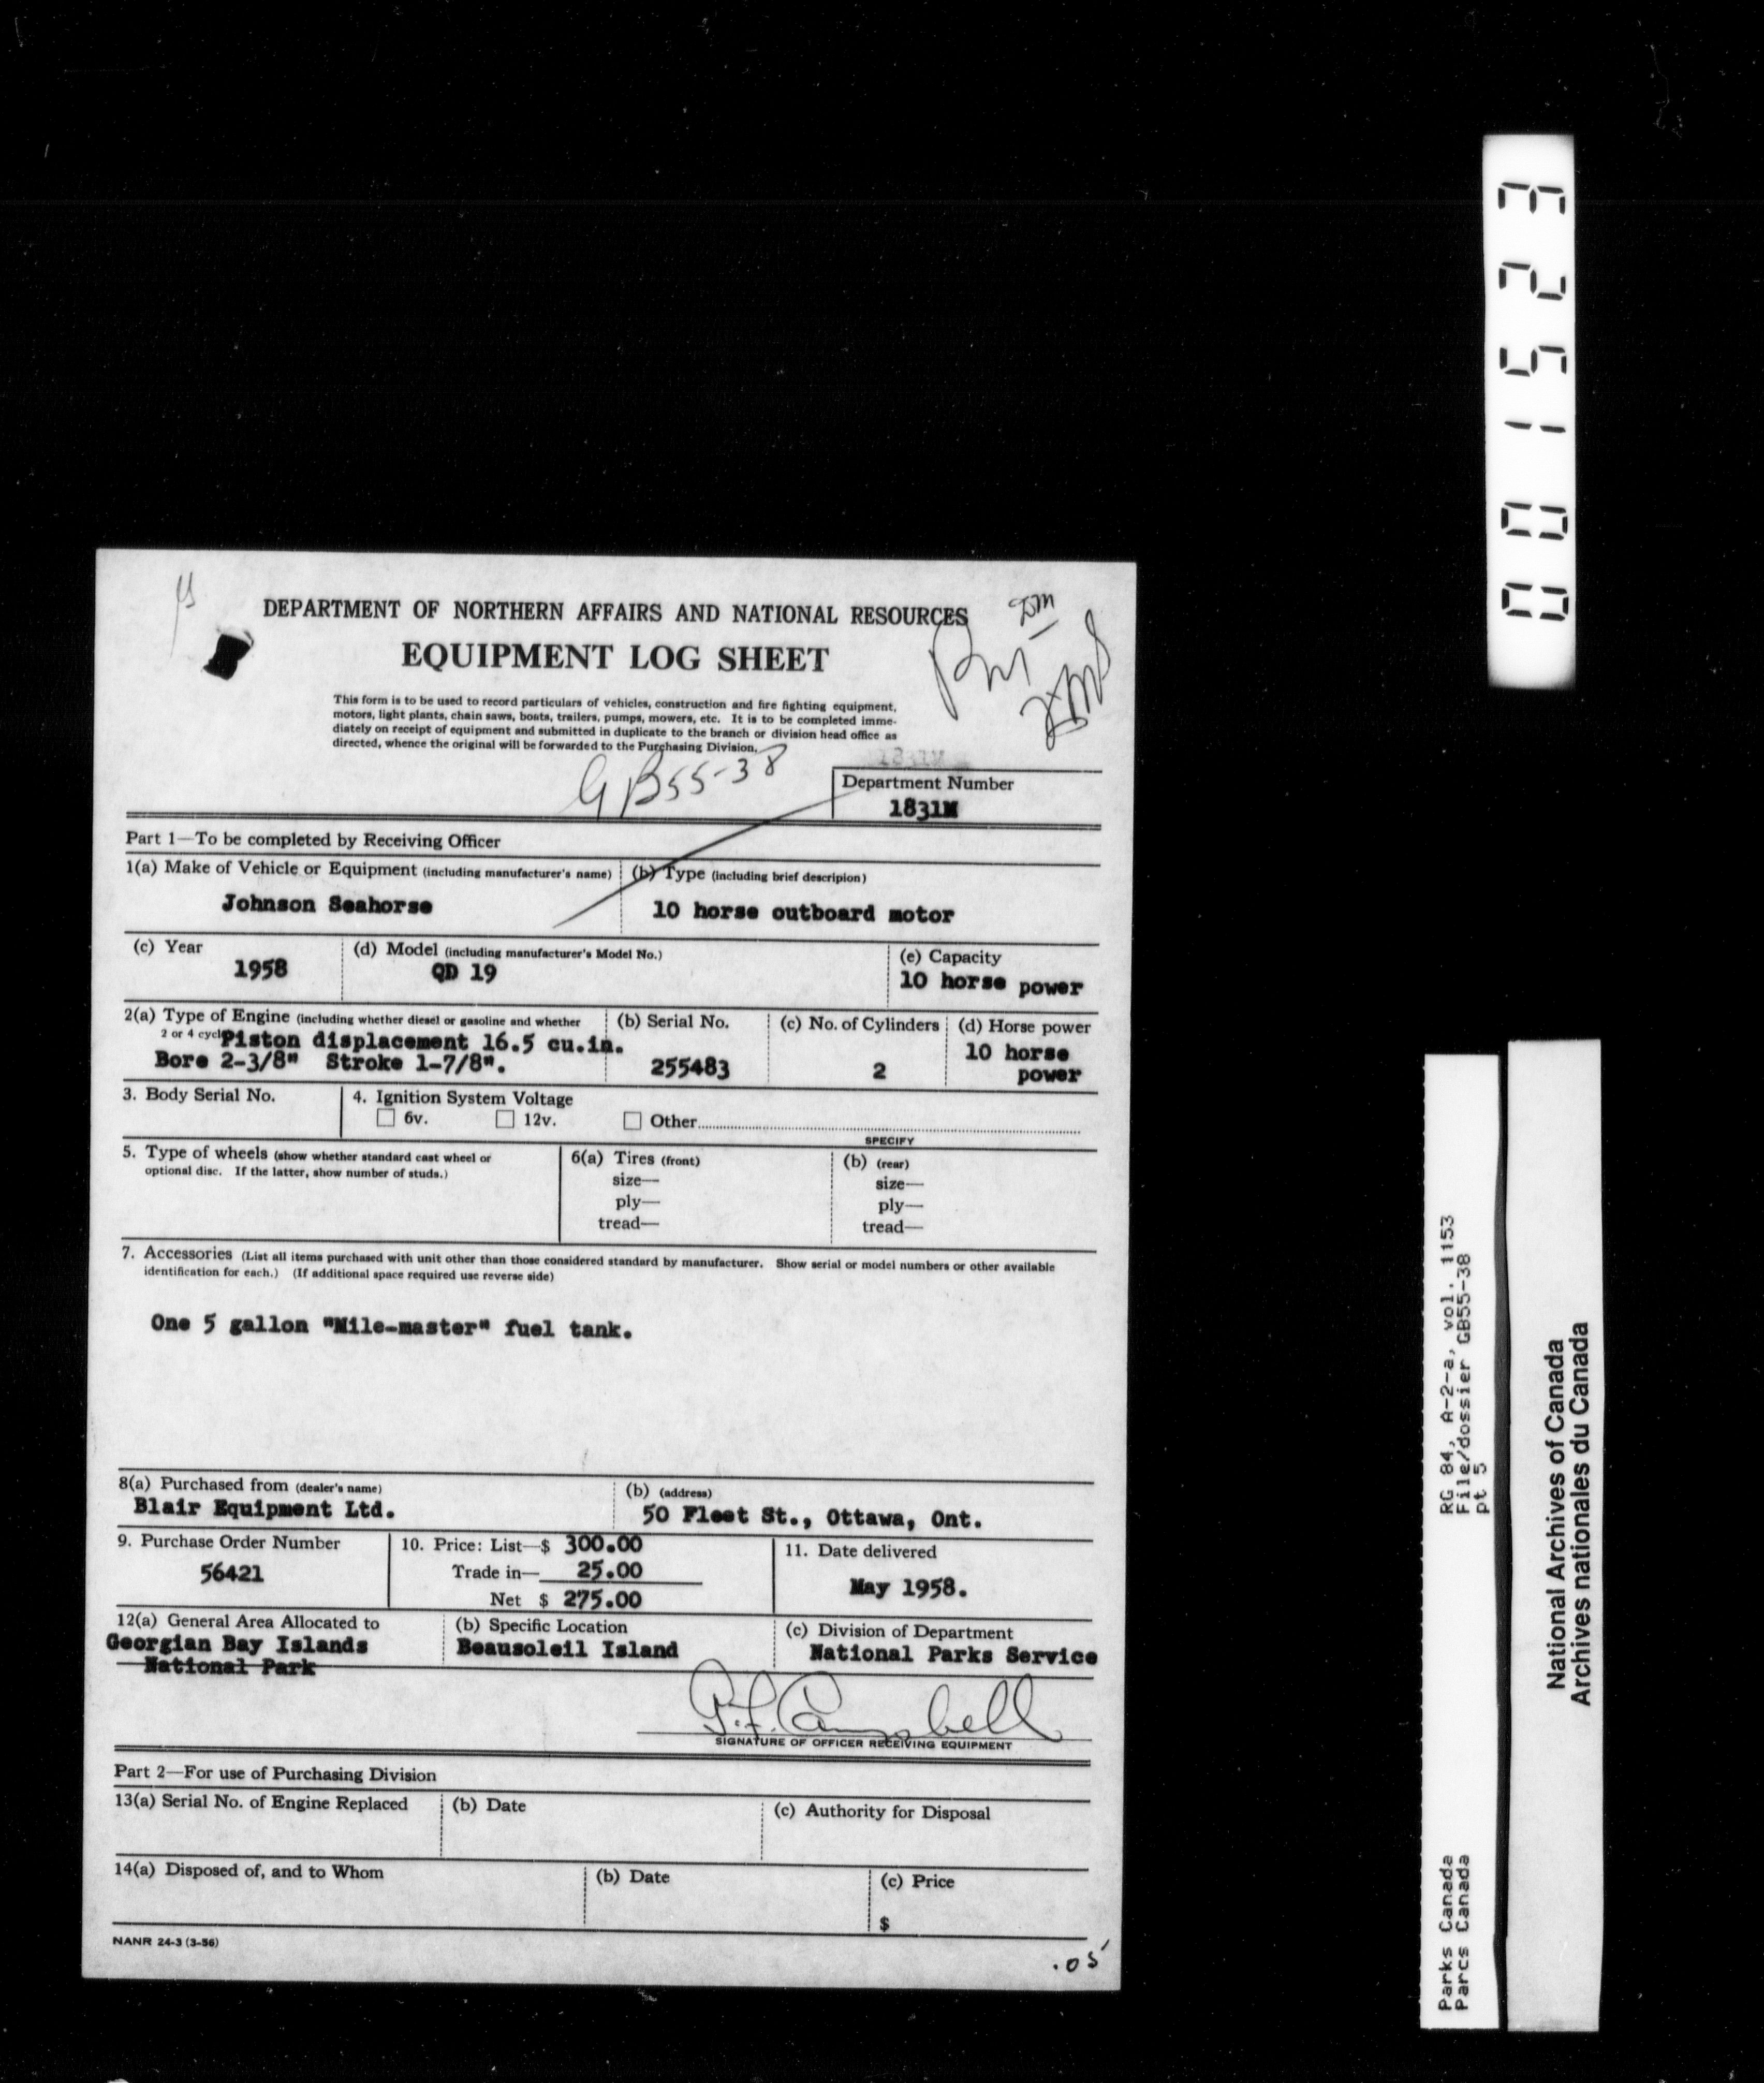 DEPARTMENT OF NORTHERN AFFAIRS AND NATIONAL RESOURCES
EQUIPMENT LOG SHEET
This form is to be used to record particulars of vehicles, construction and fire fighting equipment,
motors, light plants, chain saws, boats, trailers, pumps, mowers, etc. It is to be completed imme-
diately on receipt of equipment and submitted in duplicate to the branch or division head office as
directed, whence the original will be forwarded to the Purchasing Division.
GB55-38
1831M
Department Number
1831M
Part 1—To be completed by Receiving Officer
1(a) Make of Vehicle or Equipment (including manufacturer's name)
Johnson Seahorse
(b) Type (including brief descripion)
10 horse outboard motor
(c) Year
1958
(d) Model (including manufacturer's Model No.)
QD 19
(e) Capacity
10 horse power
2(a) Type of Engine (including whether diesel or gasoline and whether
2 or 4 cycl Piston displacement 16.5 cu.in.
Bore 2-3/8" Stroke 1-7/8".
(b) Serial No.
255483
(c) No. of Cylinders
2
(d) Horse power
10 horse
power
3. Body Serial No.
4. Ignition System Voltage
6v. 12v. Other
SPECIFY
5. Type of wheels (show whether standard cast wheel or
optional disc. If the latter, show number of studs.)
6(a) Tires (front)
size—
ply—
tread—
(b) (rear)
size—
ply—
tread—
7. Accessories (List all items purchased with unit other than those considered standard by manufacturer. Show serial or model numbers or other available
identification for each.) (If additional space required use reverse side)
One 5 gallon "Mile-master" fuel tank.
8(a) Purchased from (dealer's name)
Blair Equipment Ltd.
(b) (address)
50 Fleet St., Ottawa, Ont.
9. Purchase Order Number
56421
10. Price: List—$ 300.00
Trade in— 25.00
Net $ 275.00
11. Date delivered
May 1958.
12(a) General Area Allocated to
Georgian Bay Islands
National Park
(b) Specific Location
Beausoleil Island
(c) Division of Department
National Parks Service
P.F. Campbell
SIGNATURE OF OFFICER RECEIVING EQUIPMENT
Part 2—For use of Purchasing Division
13(a) Serial No. of Engine Replaced
(b) Date
(c) Authority for Disposal
14(a) Disposed of, and to Whom
(b) Date
(c) Price
$
NANR 24-3 (3-56)
.05
001523
RG 84, A-2-a, vol. 1153
File/dossier GB55-38
pt 5
Parks Canada
Parcs Canada
National Archives of Canada
Archives nationales du Canada